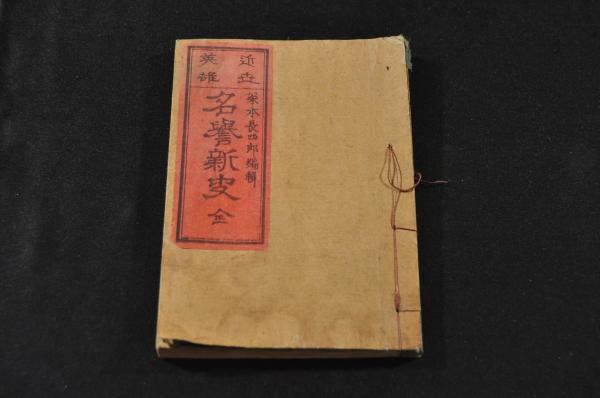 近世
英雄
栄本長四郎編輯
名誉新史 全